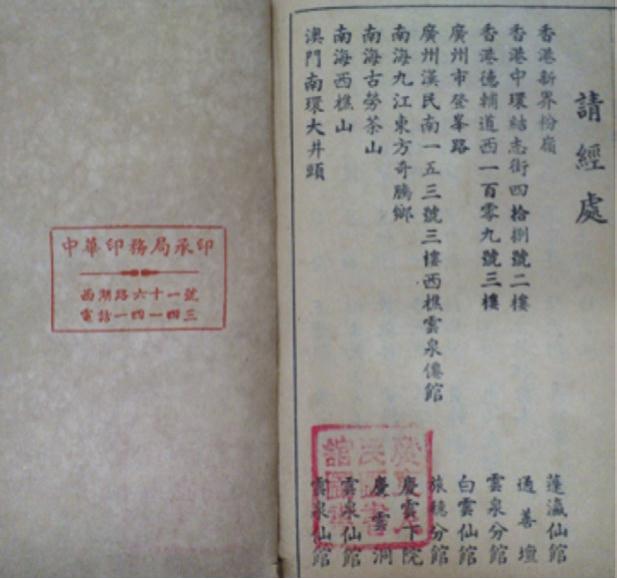 請經處
香港新界粉嶺 蓬瀛仙館
香港中環結志街四拾捌號二樓 通善壇
香港德輔道西一百零九號三樓 雲泉分館
廣州市登峯路 白雲仙館
廣州漢民南一五三號三樓西樵雲泉僊館 旅穗分館
南海九江東方奇鵬鄉 慶雲下院
南海古勞茶山 慶雲洞
南海西樵山 雲泉仙館
澳門南環大井頭 雲泉仙館
中華印務局承印
西湖路六十一號
電話一四一四三